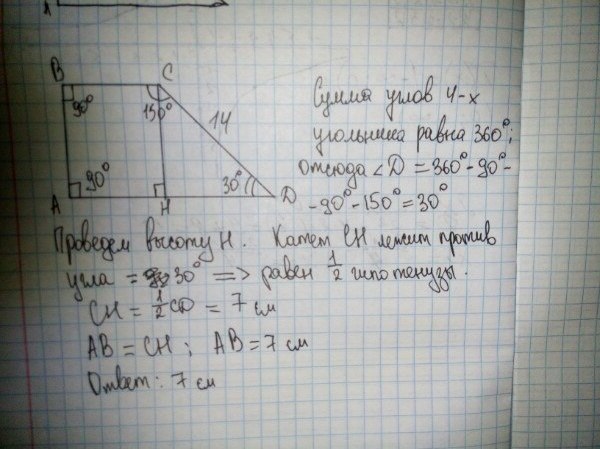 B C
90° 150° 14
90° 30°
A H D
Сумма углов 4-х
угольника равна 360°;
отсюда ∠D = 360° - 90° -
- 90° - 150° = 30°
Проведем высоту H. Катет CH лежит против
угла = 30° => равен 1/2 гипотенузы.
CH = 1/2 CD = 7 см
AB = CH; AB = 7 см
Ответ: 7 см